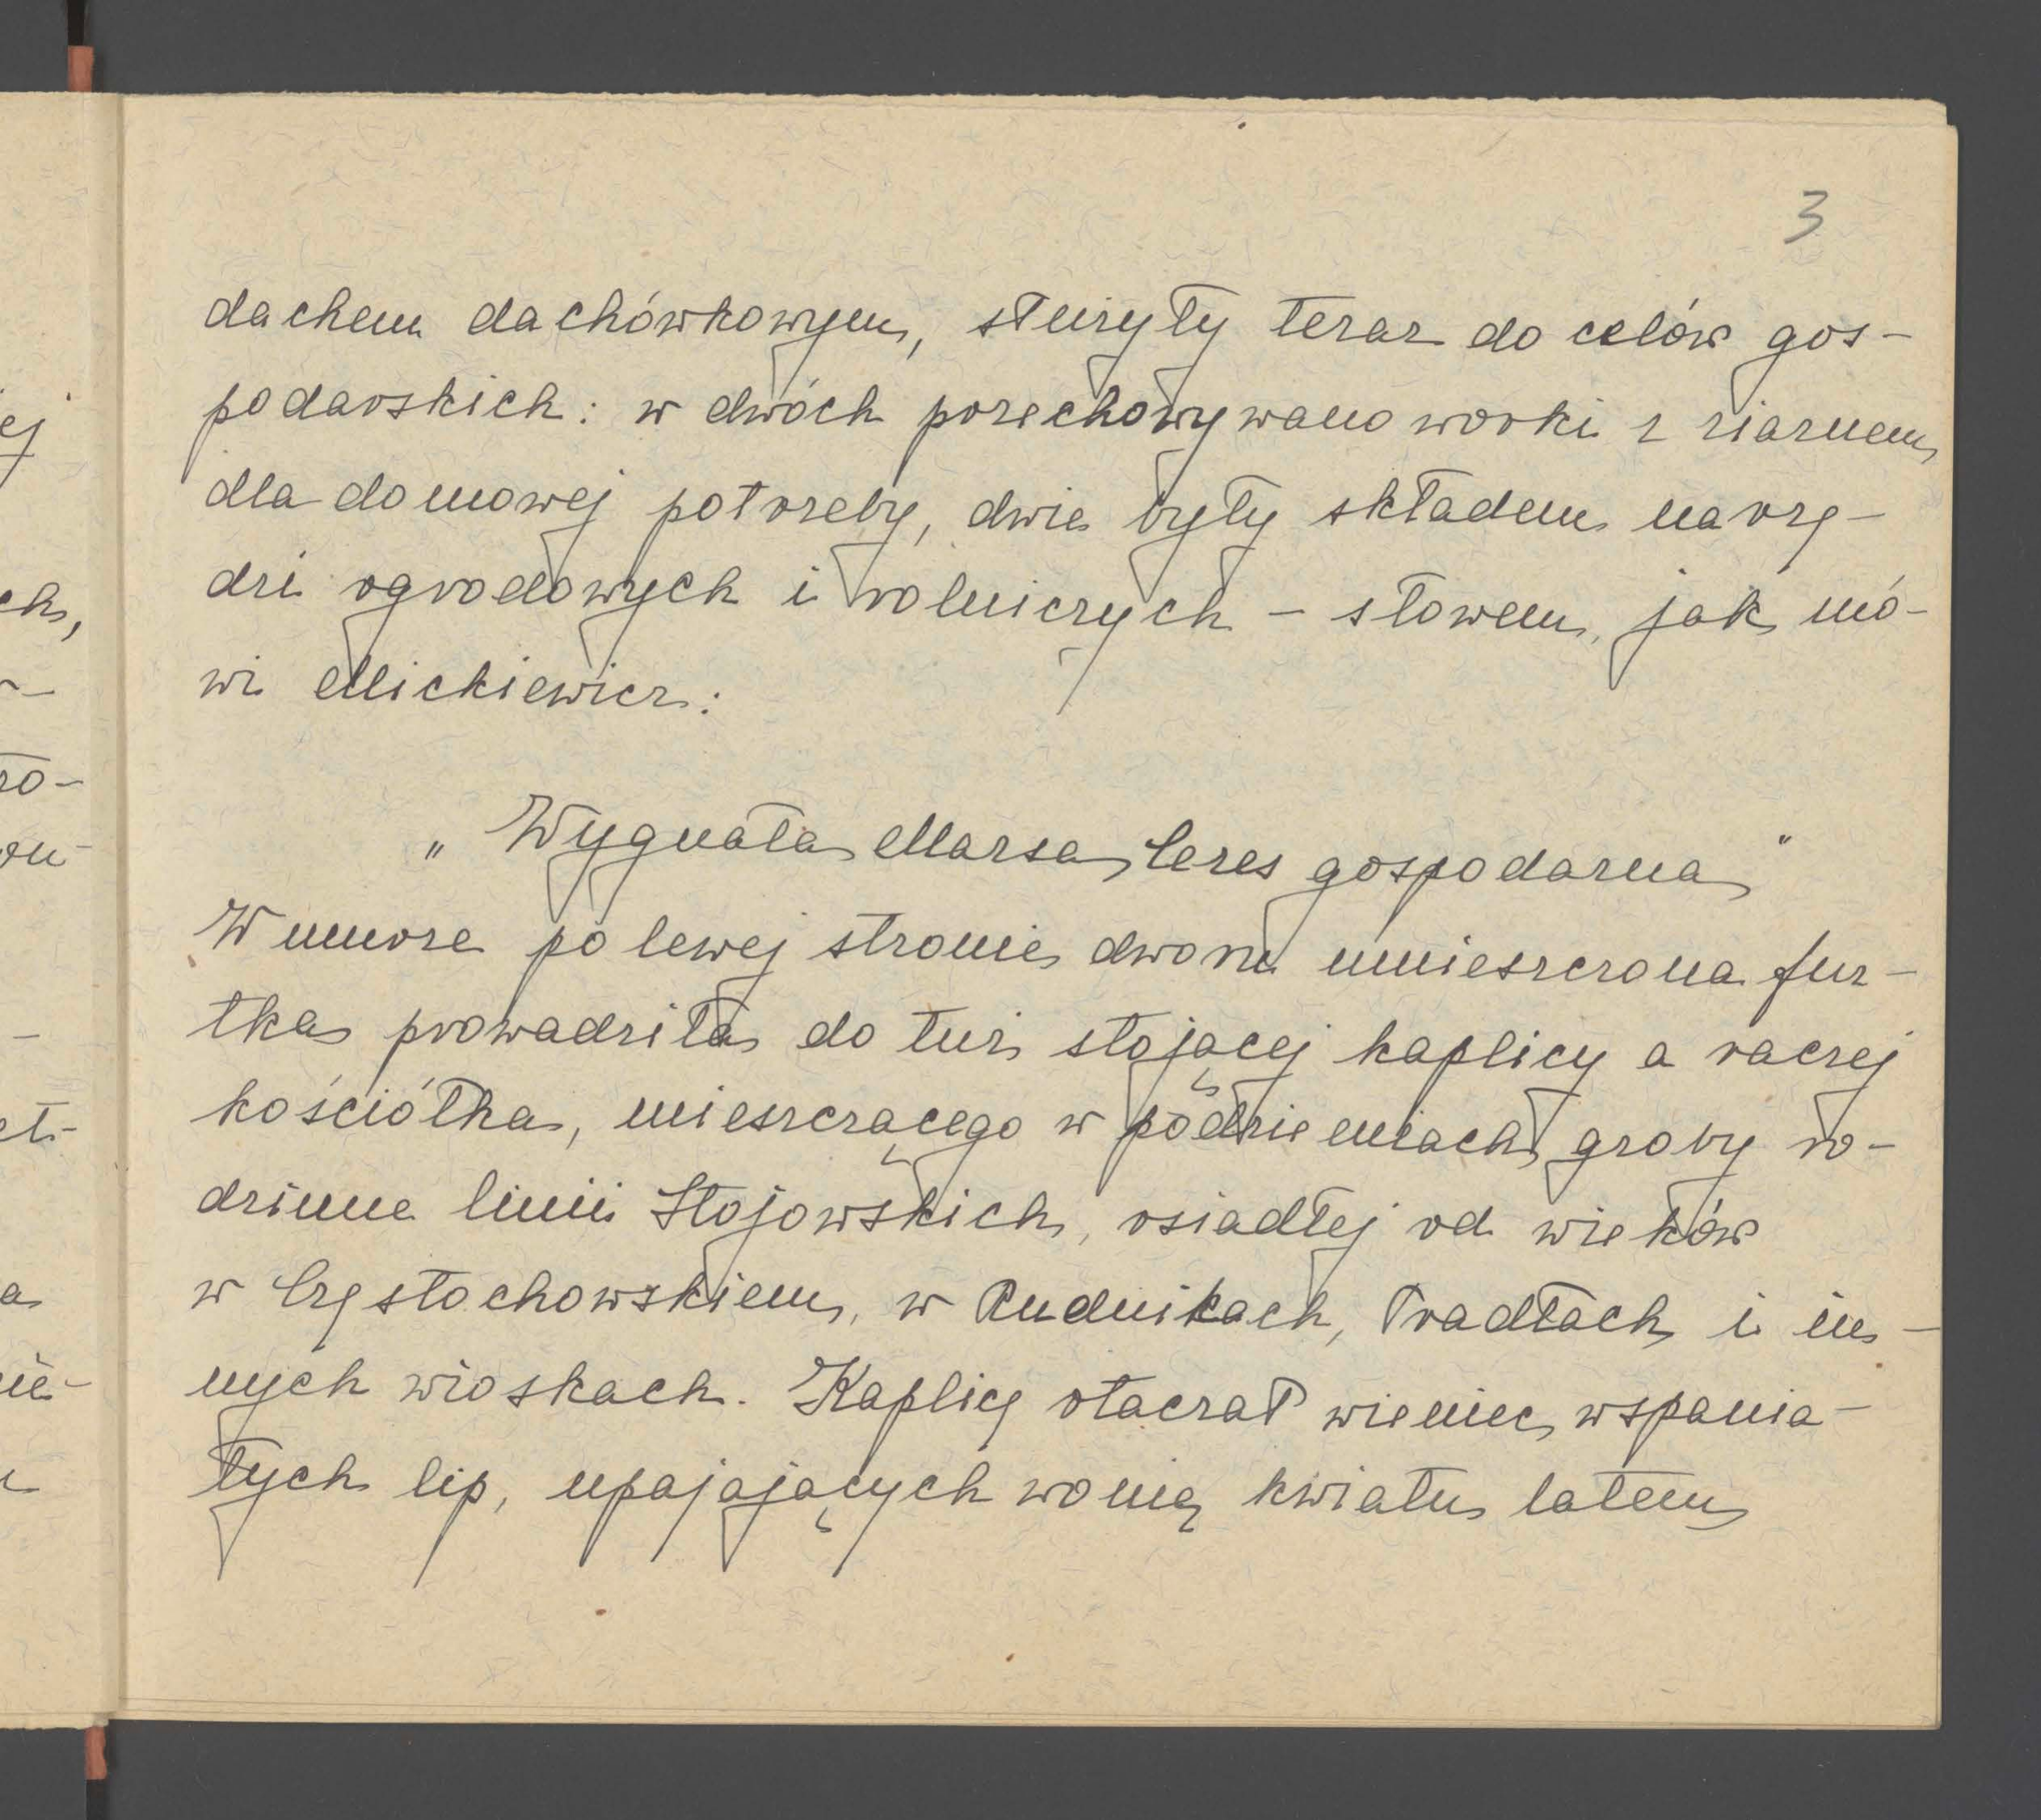 3
dachem dachówkowym, służyły teraz do celów gos-
podarskich: w dwóch przechowywano worki z ziarnem
dla domowej potrzeby, dwie były składem narzę-
dzi ogrodowych i rolniczych – słowem, jak mó-
wi Mickiewicz:
„Wygnała Marsa Ceres gospodarna"
W murze po lewej stronie dworu umieszczona fur-
tka prowadziła do tuż stojącej kaplicy a raczej
kościółka, mieszczącego w podziemiach groby ro-
dzinne linii Stojowskich, osiadłej od wieków
w Częstochowskiem, w Rudnikach, Pradłach i in-
nych wioskach. Kaplicę otaczał wieniec wspania-
łych lip, upajających wonią kwiatu latem